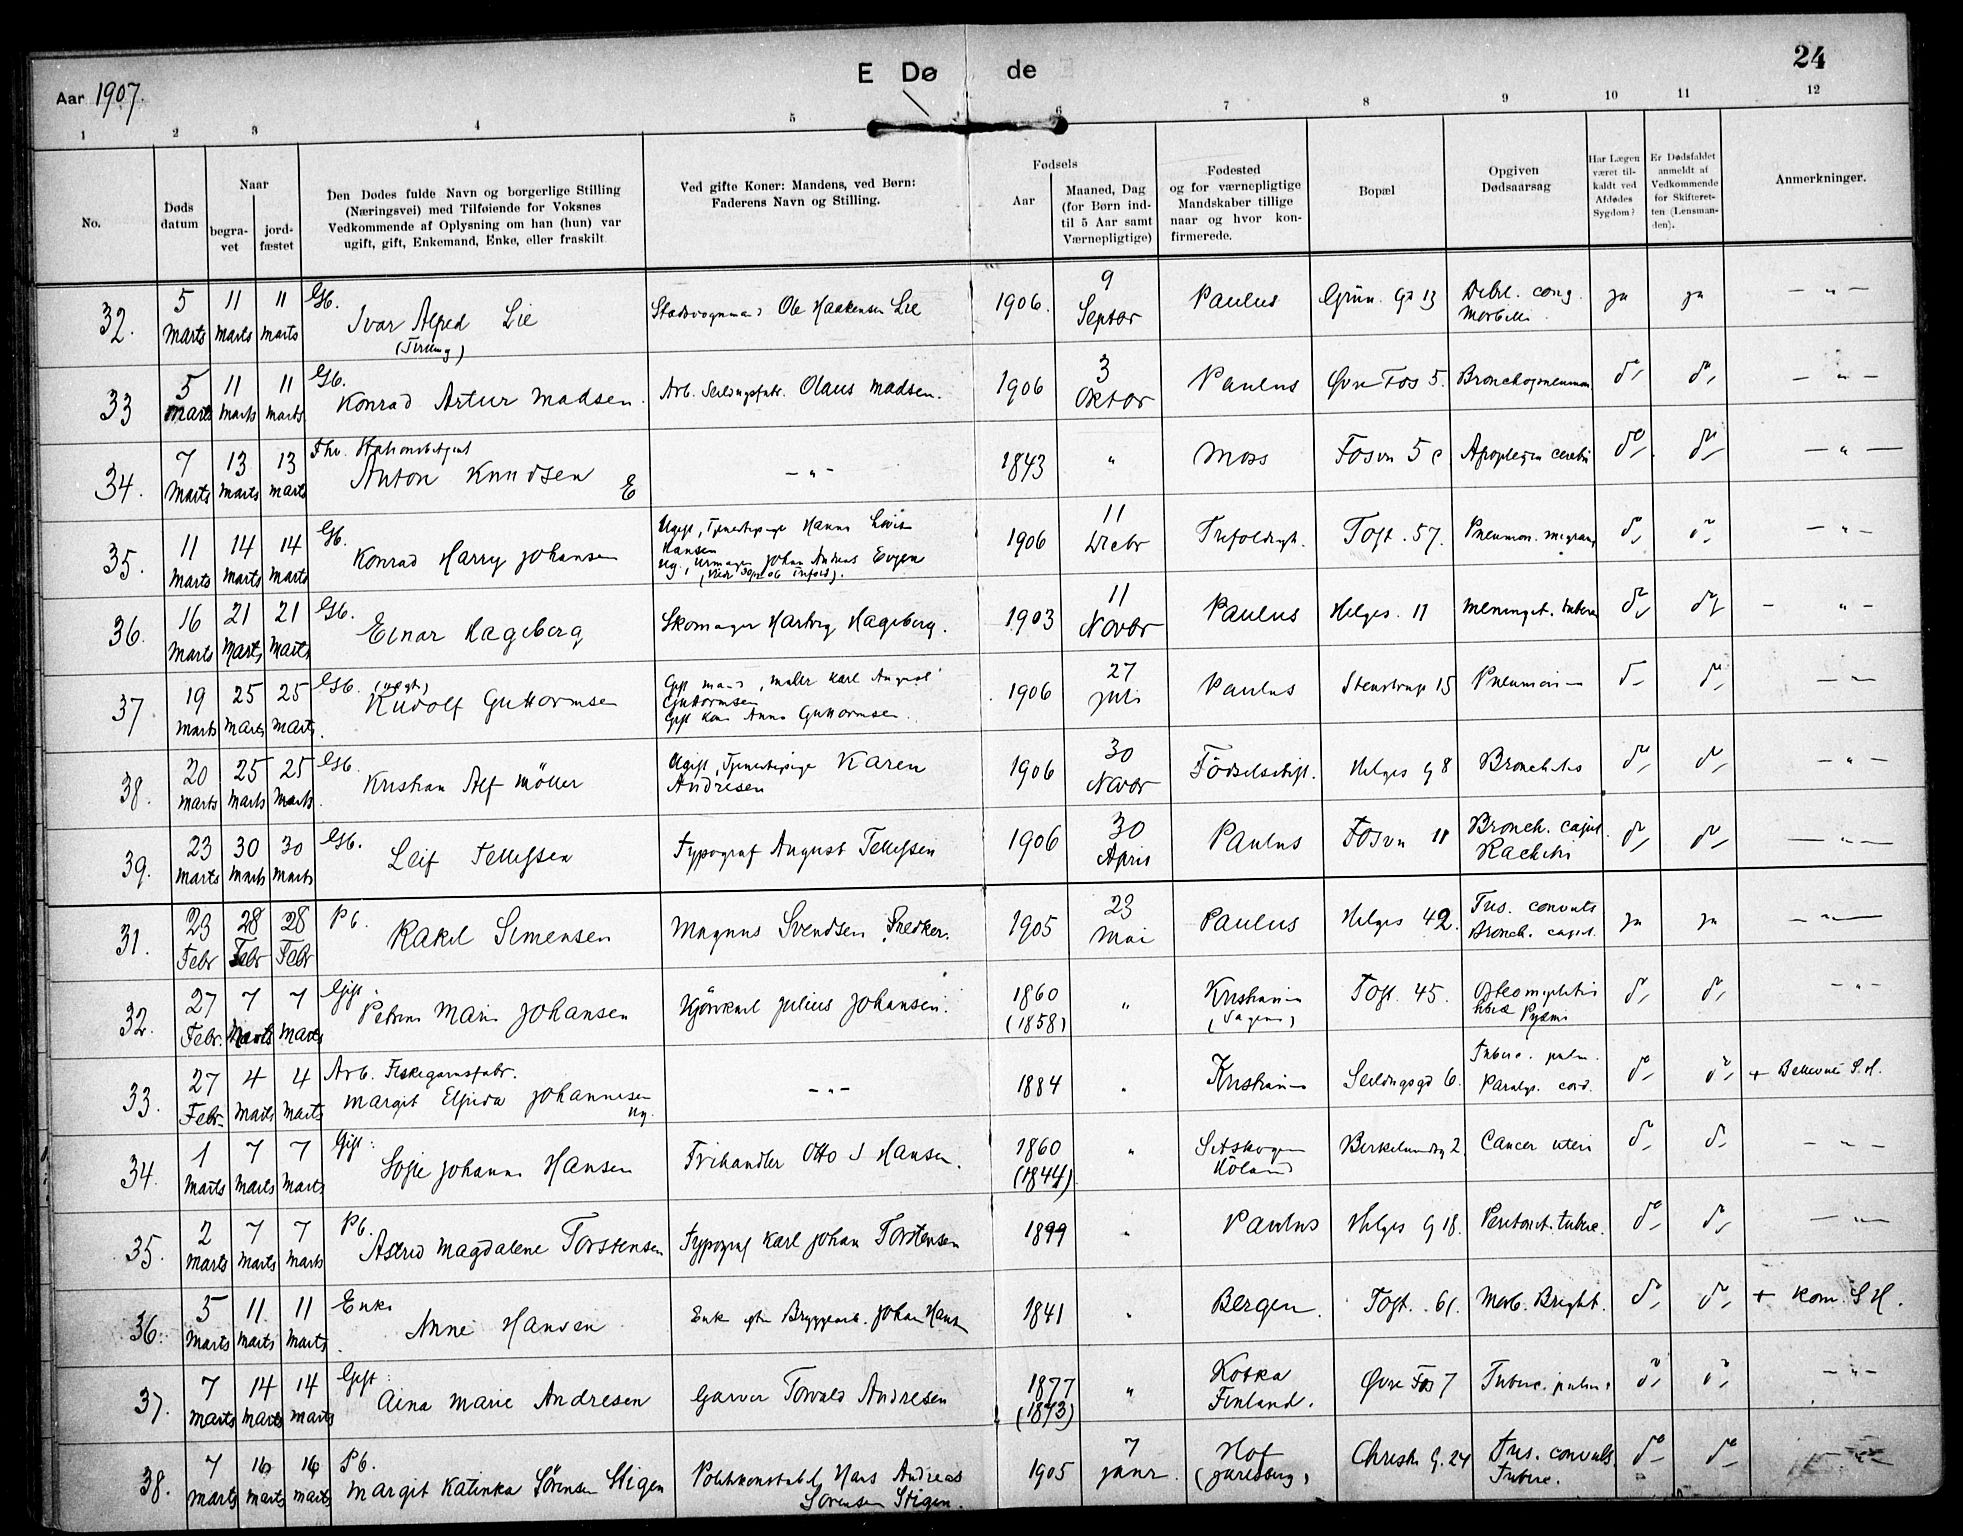 24
E Dø de
Aar 1907.
1 2 3 4 5 6 7 8 9 10 11 12
No.
Døds datum
Naar
begra-vet
jord-fæstet
Den Dødes fulde Navn og borgerlige Stilling
(Næringsvei) med Tilføiende for Voksnes
Vedkommende af Oplysning om han (hun) var
ugift, gift, Enkemand, Enke, eller fraskilt
Ved gifte Koner: Mandens, ved Børn:
Faderens Navn og Stilling.
Fødsels
Aar
Maaned, Dag
(for Børn ind-
til 5 Aar samt
Værnepligtige)
Fødested
og for værnepligtige
Mandskaber tillige
naar og hvor kon-
firmerede.
Bopæl
Opgiven
Dødsaarsag
Har Lægen
været til-
kaldt ved
Afdødes
Sygdom?
Er Dødsfaldet
anmeldt af
Vedkommende
for Skifteret-
ten (Lensman-
den).
Anmerkninger.
32. 5 Marts 11 Marts 11 Marts Gb. Ivar Alfred Lie Ole Haakensen Lie 1906. 9 Septbr Paulus Grün. Gd 13 Debil. cong. Morbilli ja ja — " —
33 5 Marts 11 Marts 11 Marts Gb. Konrad Artur Madsen. Arb. Seildugsfabr. Olaus Madsen. 1906 3 Oktbr Paulus Øvre Fos 5. Bronchopneumon do, do, — " —
34. 7 Marts 13 Marts 13 Marts Fhv. Stationsbetjent Anton Knudsen E — " — 1843 " Moss Fosvn 5 c Apoplexia cerebri do, do, — " —
35. 11 Marts 14 Marts 14 Marts Gb. Konrad Harry Johansen Ugift, Tjenestepige Hanna Lovise Hansen
Ug., Urmager Johan Andreas Evgen 1906 11 Decbr Trefoldigh. Toft. 57. Pneumon. migrans do, do, — " —
36. 16 Marts 21 Marts 21 Marts Gb. Einar Hageberg Skomager Hartvig Hageberg. 1903 11 Novbr Paulus Helges. 11 Meningit. tuberc do, do, — " —
37 19 Marts 25 Marts 25 Marts. Gb. Rudolf Guttormsen Gift mand, maler Karl August Guttormsen
Gift kone Anna Guttormsen. 1906 27 Juli Paulus Stenstrups 15 Pneumonia do, do, — " —
38. 20 Marts 25 Marts 25 Marts. Gb. Kristian Alf Möller Ugift, Tjenestepige Karen Andresen 1906 30 Novbr Födselsstift. Helges g 8 Bronchitis do, do, — " —
39. 23 Marts 30 Marts 30 Marts Gb. Leif Tellefsen Typograf August Tellefsen 1906 30 April Paulus Fosvn 11 Bronch. capil. Rachitis do, do, — " —
31. 23 Febr 28 Febr 28 Febr Pb. Rakel Simensen Magnus Svendsen Snedker. 1905 23 Mai Paulus Helges 42. Tus. convuls Bronch. capil. ja ja — " —
32. 27 Febr. 7 Marts 7 Marts Gift. Petrine Marie Johansen Kjörekarl Julius Johansen. 1860 (1858) " Kristiania (Sagene) Toft. 45. Osteomyelitis tibiæ Pyæmi do, do, — " —
33. 27 Febr. 4 Marts 4 Marts Arb. Fiskegarnsfabr. Margit Elfrida Johannesen Ug. — " — 1884 " Kristiania Seildugsgd 6. Tuberc. pulm. Paralys. cord. do, do, + Bellevue S.H.
34. 1 Marts 7 Marts 7 Marts Gift. Sofie Johanne Hansen Frihandler Otto J Hansen. 1860 (1844) " Setskogen Höland Birkelundg 2 Cancer uteri do, do, — " —
35. 2 Marts 7 Marts 7 Marts Pb. Astrid Magdalene Torstensen Typograf Karl Johan Torstensen 1899 " Paulus Helges g 18. Peritonit. tuberc. do, do, — " —
36. 5 Marts 11 Marts 11 Marts. Enke Anne Hansen Enke efter Bryggearb. Johan Hansen 1841 " Bergen. Toft. 61. Morb. Bright. do, do, + Kom. S H.
37. 7 Marts 14 Marts 14 Marts Gift. Aina Marie Andresen Garver Torvald Andresen 1877 (1873) " Kotka Finland. Øvre Fos 7 Tuberc. pulm. do, do, — " —
38. 7 Marts 16 Marts 16 Marts Pb. Margit Katinka Sörensen Stigen Politikonstabel Hans Andreas Sörensen Stigen. 1905 7 Janr. Hof (Jarlsberg) Christi. G. 24 Tus. convuls. Tuberc. do, do, — " —